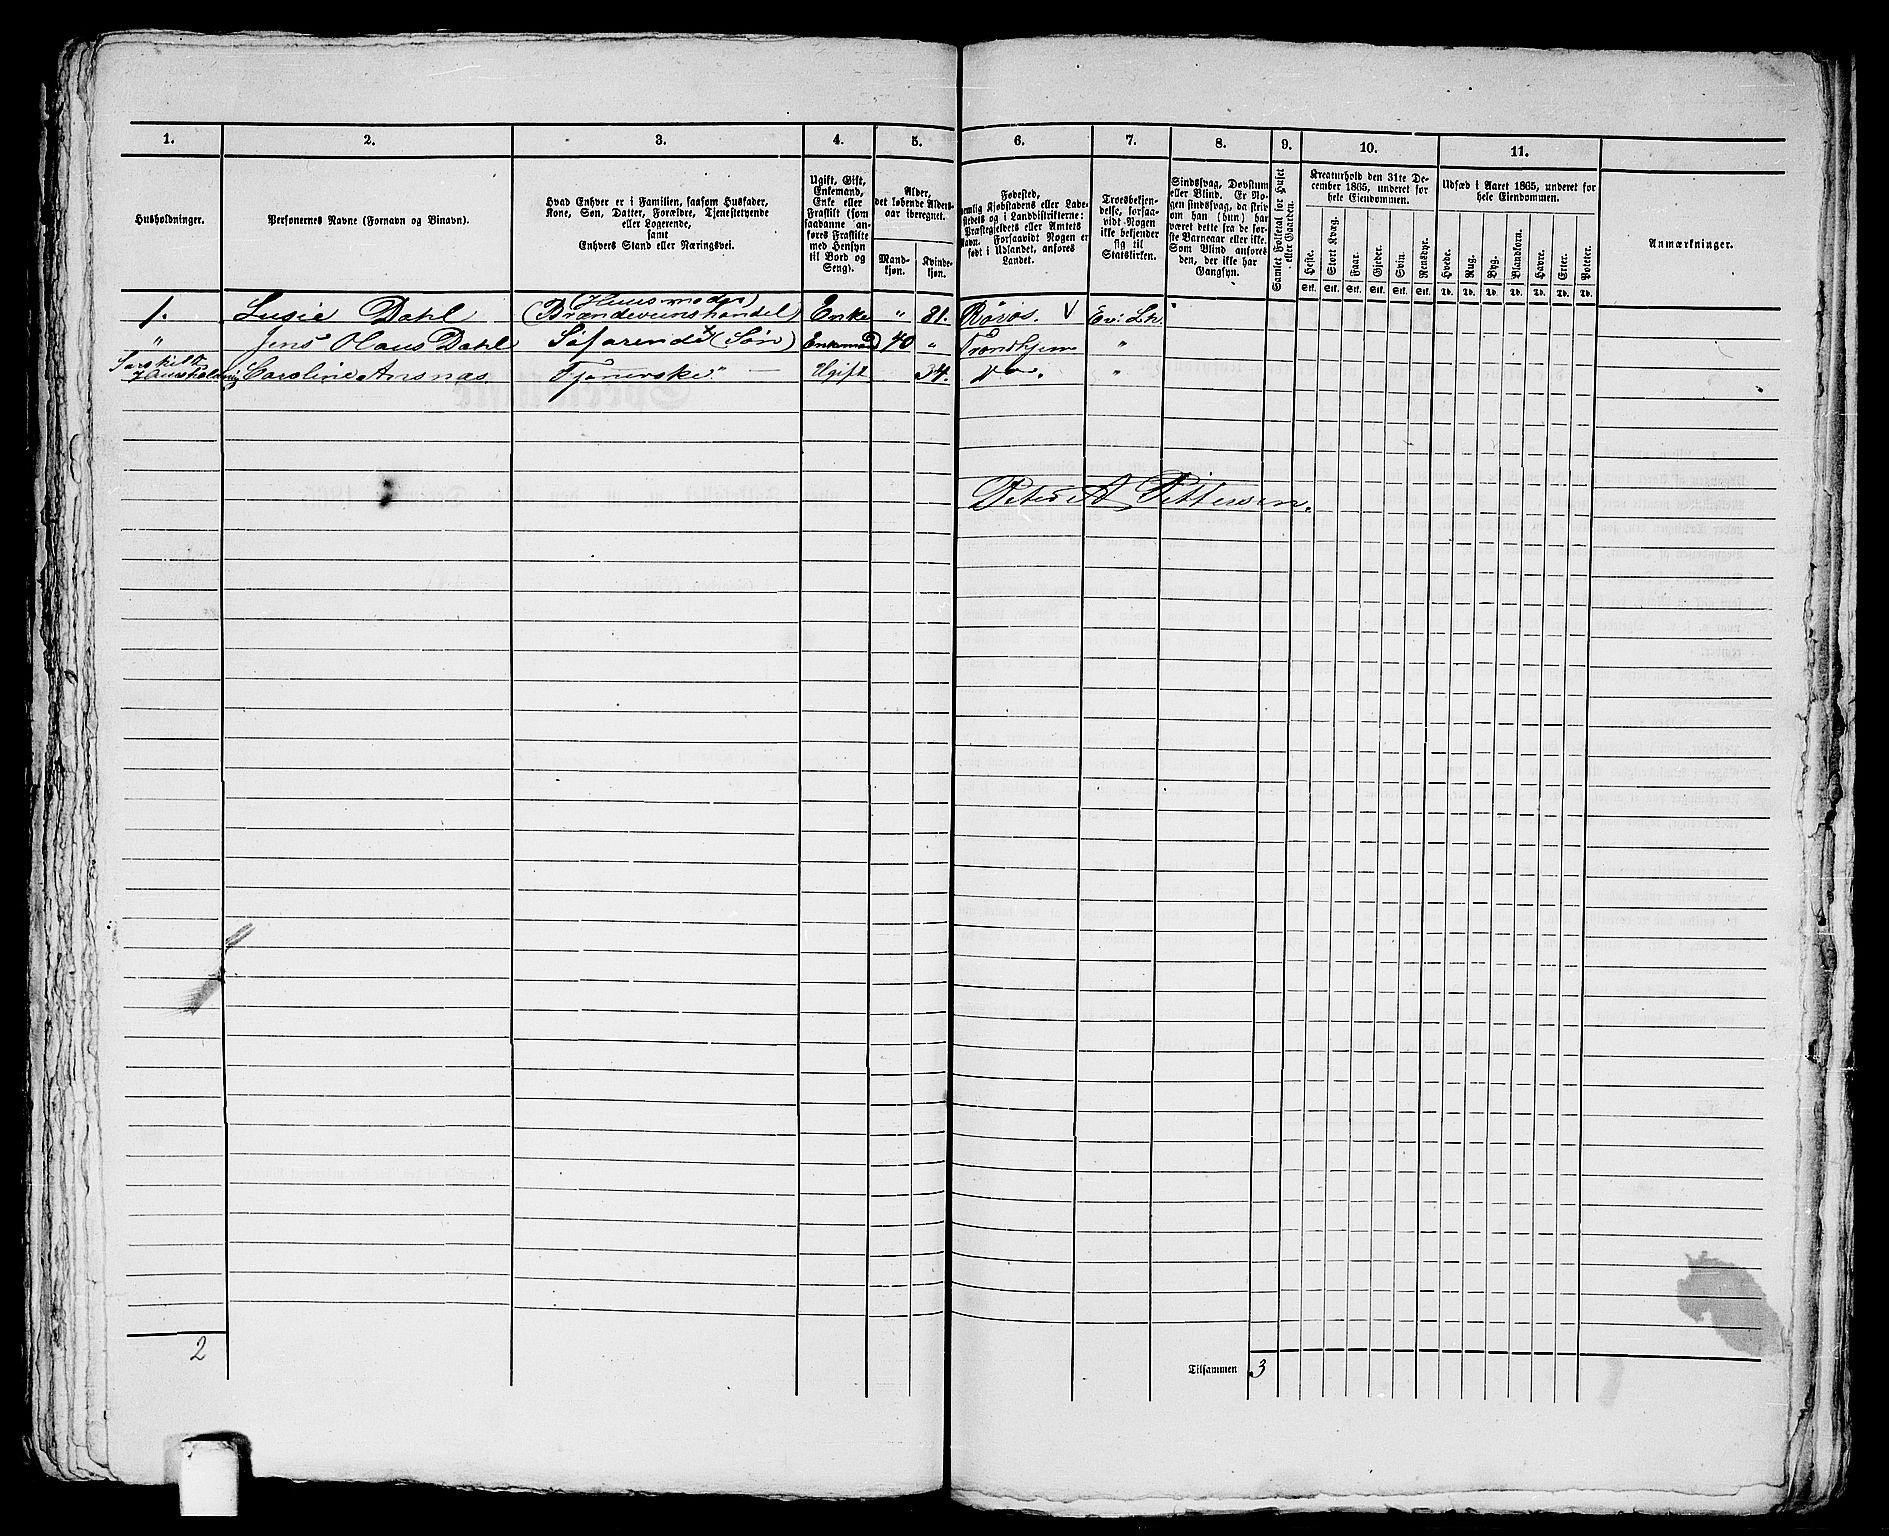 1. 2. 3. 4. 5. 6. 7. 8. 9. 10. 11.
Husholdninger.
Personernes Navne (Fornavn og Binavn).
Hvad Enhver er i Familien, saasom Husfader,
Kone, Søn, Datter, Forældre, Tjenestetyende
eller Logerende,
samt
Enhvers Stand eller Næringsvei.
Ugift, Gift,
Enkemand,
Enke eller
Fraskilt (som
saadanne an-
føres Fraskilte
med Hensyn
til Bord og
Seng).
Alder,
det løbende Alders-
aar iberegnet.
Mand-
kjøn.
Kvinde-
kjøn.
Fødested,
nemlig Kjøbstadens eller Lade-
stedets og i Landdistrikterne:
Præstegjeldets eller Amtets
Navn. Forsaavidt Nogen er
født i Udlandet, anføres
Landet.
Troesbekjen-
delse, forsaa-
vidt Nogen
ikke bekjender
sig til
Statskirken.
Sindssvag, Døvstum
eller Blind. Er No-
gen sindssvag, da skriv
om han (hun) har
været dette fra de før-
ste Barneaar eller ikke.
Som Blind anføres
den, der ikke har
Gangsyn.
Samlet Folketal for Huset
eller Gaarden.
Kreaturhold den 31te De-
cember 1865, underet for
hele Eiendommen.
Heste. Stort Kvæg. Faar. Gjeder. Svin. Rensdyr.
Stk. Stk. Stk. Stk. Stk. Stk.
Udsæd i Aaret 1865, underet for
hele Eiendommen.
Hvede. Rug. Byg. Blandkorn. Havre. Erter. Poteter.
Td. Td. Td. Td. Td. Td. Td.
Anmærkninger.
(Huusmoder)
1. Lusie Dahl (Brændeviinshandel) Enke " 81. Røros. V Ev: Lh.
" Jens Hans Dahl Søfarende (Søn) Enkemand 40 " Trondhjem "
Særskilt
Huusholdning Caroline Aasnæs Tjenerske " Ugift 34. Do. "
Peter A Pettersen.
2 Tilsammen 3